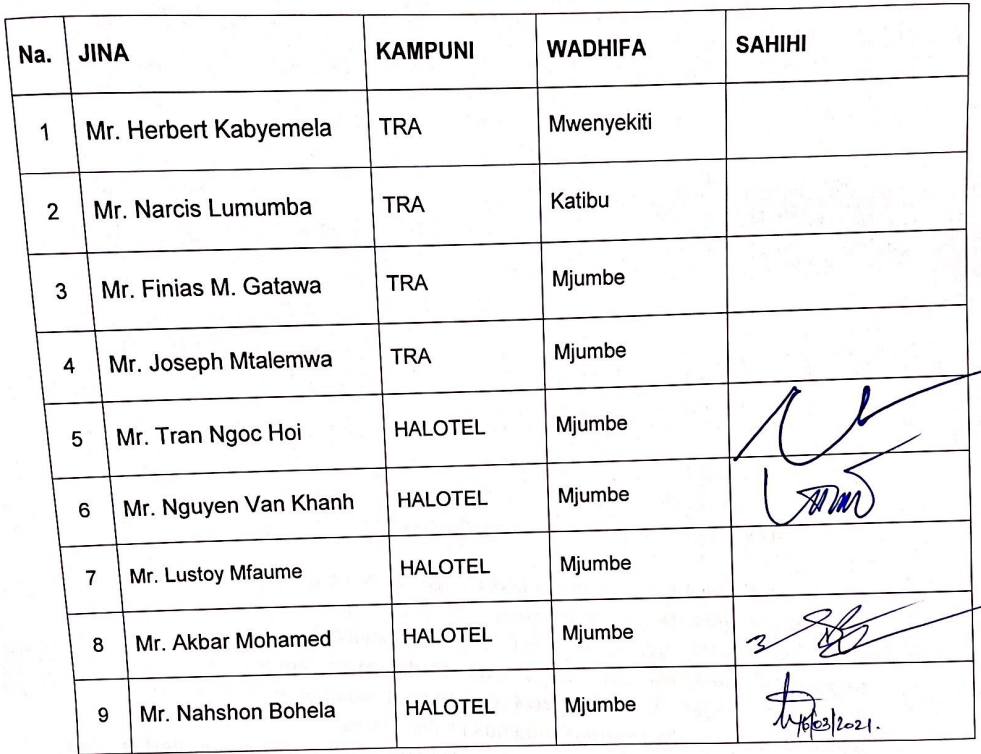 Na. JINA KAMPUNI WADHIFA SAHIHI
1 Mr. Herbert Kabyemela TRA Mwenyekiti
2 Mr. Narcis Lumumba TRA Katibu
3 Mr. Finias M. Gatawa TRA Mjumbe
4 Mr. Joseph Mtalemwa TRA Mjumbe
5 Mr. Tran Ngoc Hoi HALOTEL Mjumbe
6 Mr. Nguyen Van Khanh HALOTEL Mjumbe
7 Mr. Lustoy Mfaume HALOTEL Mjumbe
8 Mr. Akbar Mohamed HALOTEL Mjumbe
9 Mr. Nahshon Bohela HALOTEL Mjumbe